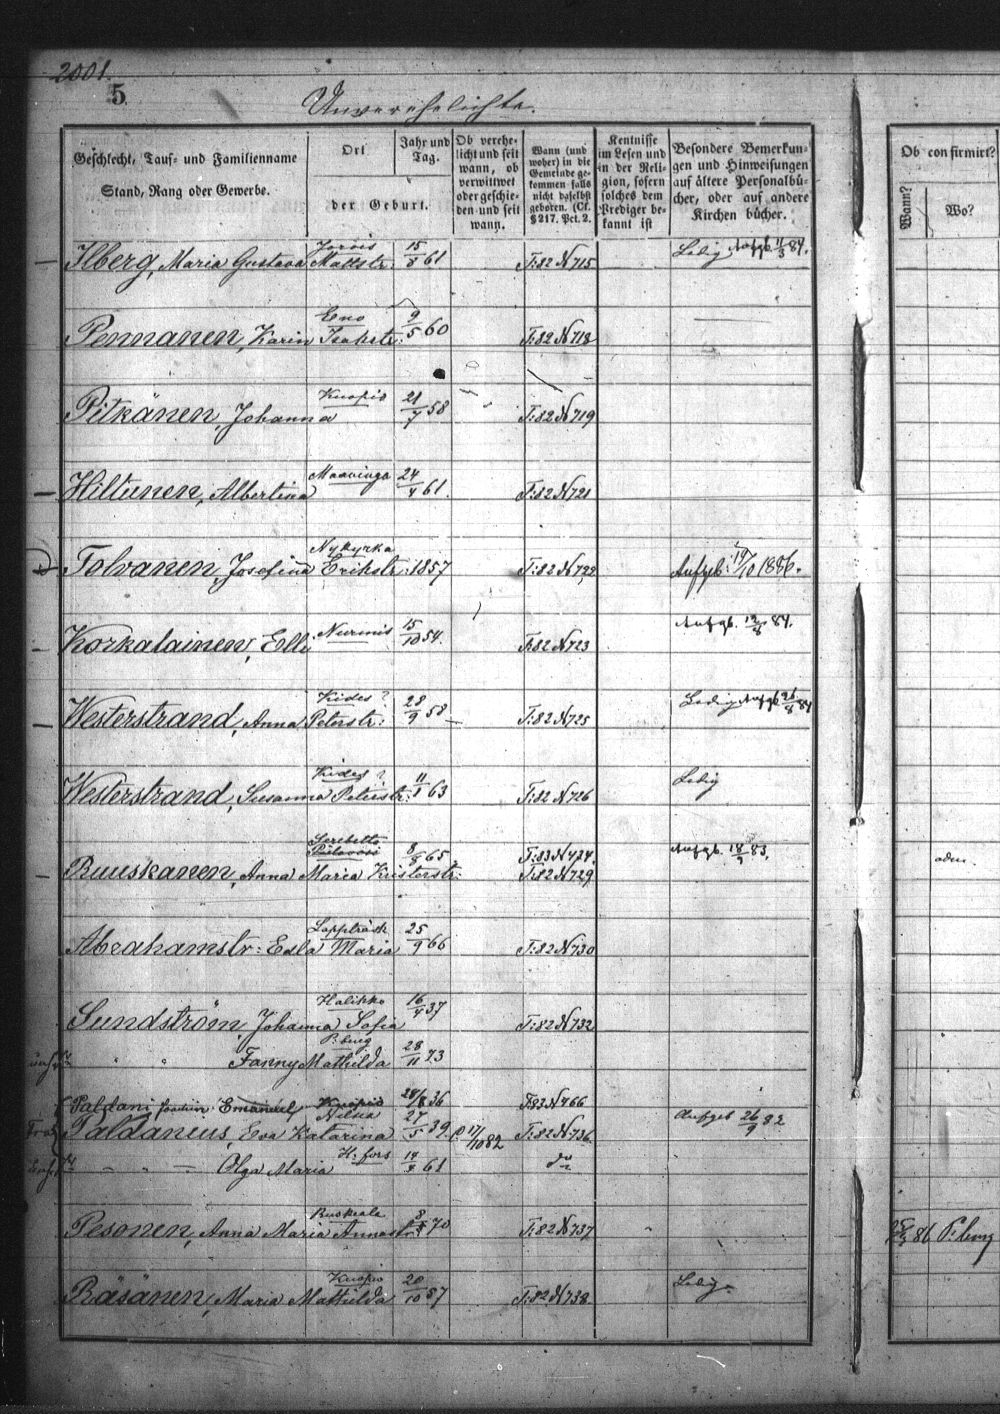 2001.
5
Unverehelichte.
Geschlecht, Tauf- und Familienname
Stand, Rang oder Gewerbe.
Ort
der Geburt.
Jahr und
Tag.
Ob verehe-
licht und seit
wann, ob
verwittwet
oder geschie-
den und seit
wann.
Wann (und
woher) in die
Gemeinde ge-
kommen falls
nicht daselbst
geboren. (Cf.
§ 217. Pct. 2.
Kentnisse
im Lesen und
in der Reli-
gion, sofern
solches dem
Prediger be-
kannt ist
Besondere Bemerkun-
gen und Hinweisungen
auf ältere Personalbü-
cher, oder auf andere
Kirchen bücher.
Ob confirmirt?
Wann?
Wo?
Jorois
Ilberg, Maria Gustava Mattstr: 15/8 61 T:82 N 715 Ledig Aufgb. 11/3 84.
Eno
Pennanen, Karin Isakstr: 9/5 60 T:82 N 718
Kuopio
Pitkänen, Johanna 21/7 58 T:82 N 719
Maaninga
Hiltunen, Albertina 24/4 61. T:82 N 721
Nykyrka
Tolvanen, Josefina Erikstr: 1857 T:82 N 722 Aufgeb. 19/10 1886.
Korkalainen, Elli Nurmis 15/10 54. T:82 N 723 Aufgb. 84.
Kides?
Westerstrand, Anna Peterstr: 28/9 58 T:82 N 725 Ledig Aufgb 26/8 84
Kides?
Westerstrand, Susanna Peterstr: 11/1 63 T:82 N 726 Ledig
Pielavesi T:83 N 424.
Ruuskanen, Anna Maria Kristerstr: 65 T:82 N 729 Aufgb. 18/9 83.
Lappträsk
Abrahamstr: Edla Maria 25/9 66 T:82 N 730
Halikko
Sundström, Johanna Sofia 16/4 37 T:82 N 732
P:burg
" " Fanny Mathilda 28/11 73
Paldani Joachim Emanuel Kuopio 36 T:83 N 466
Nilsiä
Paldanius, Eva Katarina 27/5 39. 17/10 82 T:82 N 736. Aufgeb 26/9 82
H:fors
" " Olga Maria 61 do
Ruskeala
Pesonen, Anna Maria Annastr: 70 T:82 N 737 86 P:burg
Kuopio
Räsänen, Maria Mathilda 20/10 87 T:82 N 738. Ledig.